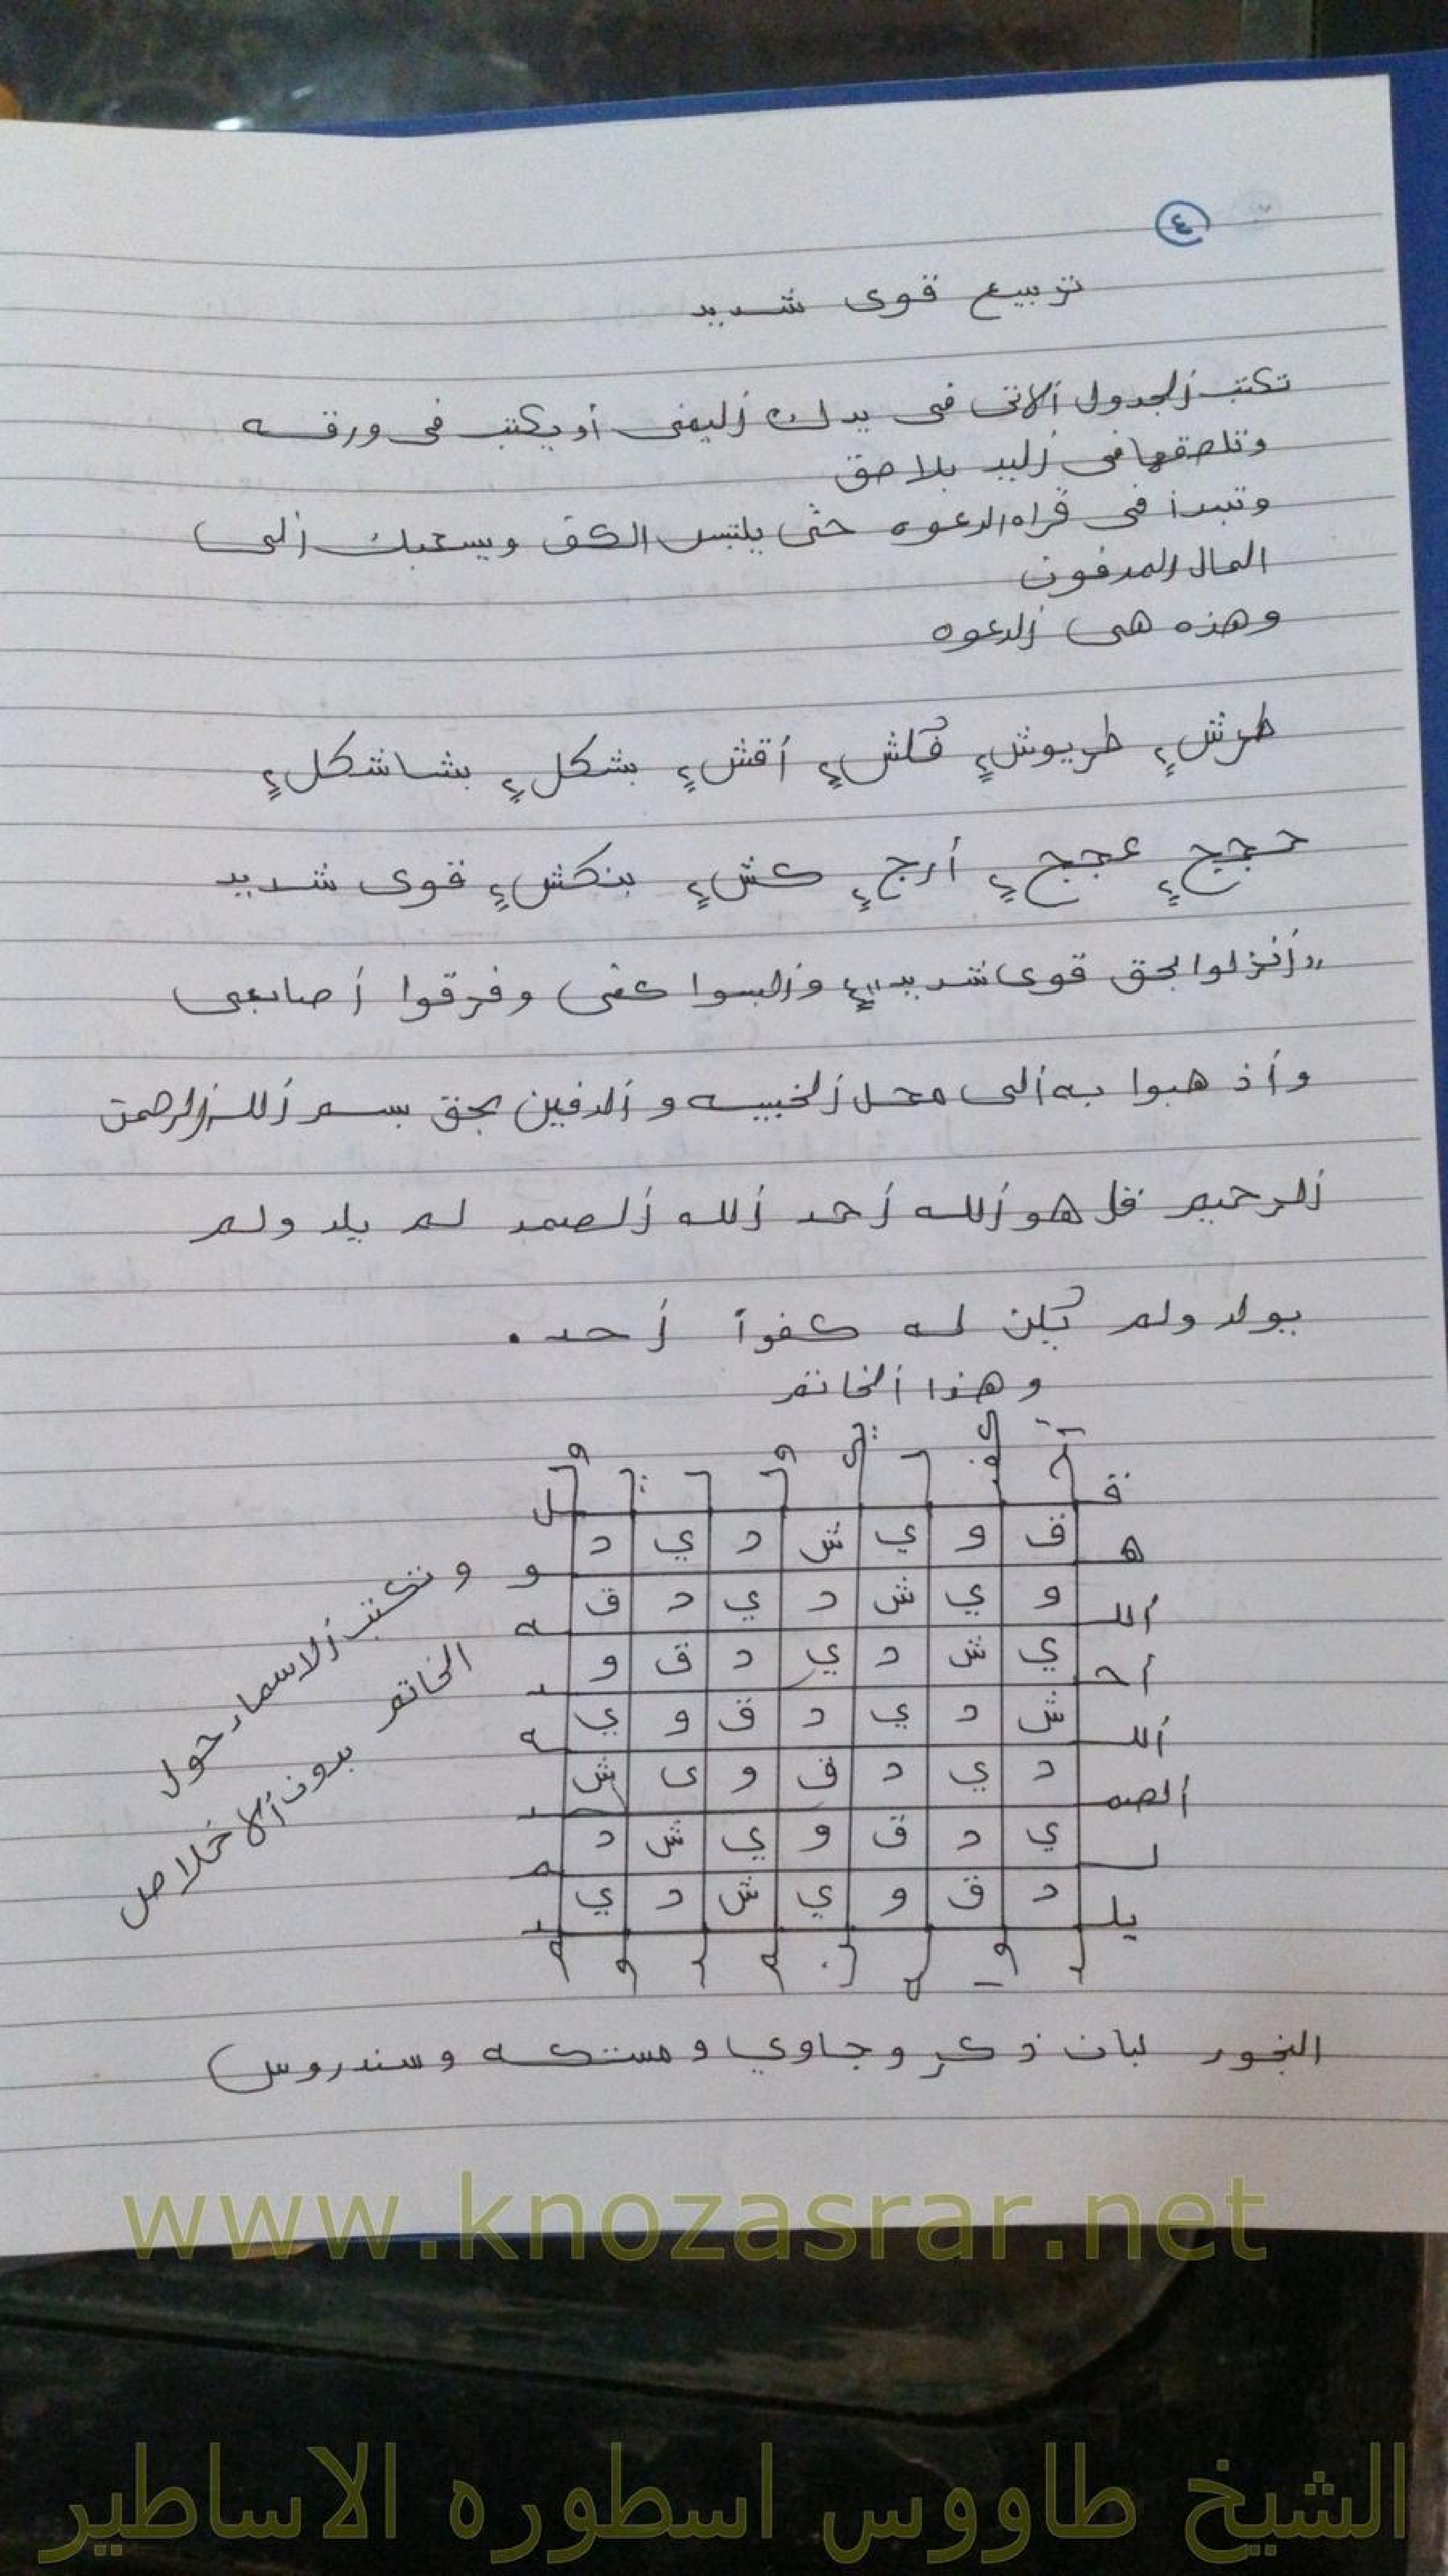 ٤
تربيع قوى شديد
تكتب الجدول الاتى فى يدك اليمنى أو يكتب فى ورقه
وتلصقها فى اليد بلاصق
وتبدأ فى قراه الدعوه حتى يلتبس الكف ويسحبك الى
المال المدفون
وهذه هى الدعوه
طرشٍ٢ طريوشٍ٢ فلشٍ٢ أقشٍ٢ بشكلٍ٢ بشاشكلٍ٢
حججٍ٢ عججٍ٢ أرجٍ٢ كشٍ٢ بنكشٍ٢ قوى شديد
"أنزلوا بحق قوى شديد"٢ والبسوا كفى وفرقوا أصابعى
وأذهبوا به ألى محل الخبيه والدفين بحق بسم الله الرحمن
الرحيم قل هو الله أحد الله الصمد لم يلد ولم
يولد ولم يكن له كفوا أحد.
وهذا الخاتم
ق ل
ق و ي ش د ي د
ه و
و ي ش د ي د ق
ألل ه
ي ش د ي د ق و
أح د
ش د ي د ق و ي
ألل ه
د ي د ق و ى ش
الصم د
ي د ق و ي ش د
ل م
د ق و ي ش د ي
يل د
وتكتب الاسماء حول
الخاتم بدون الاخلاص
البخور لبان ذكر وجاوي ومستكه وسندروس
www.knozasrar.net
الشيخ طاووس اسطوره الاساطير